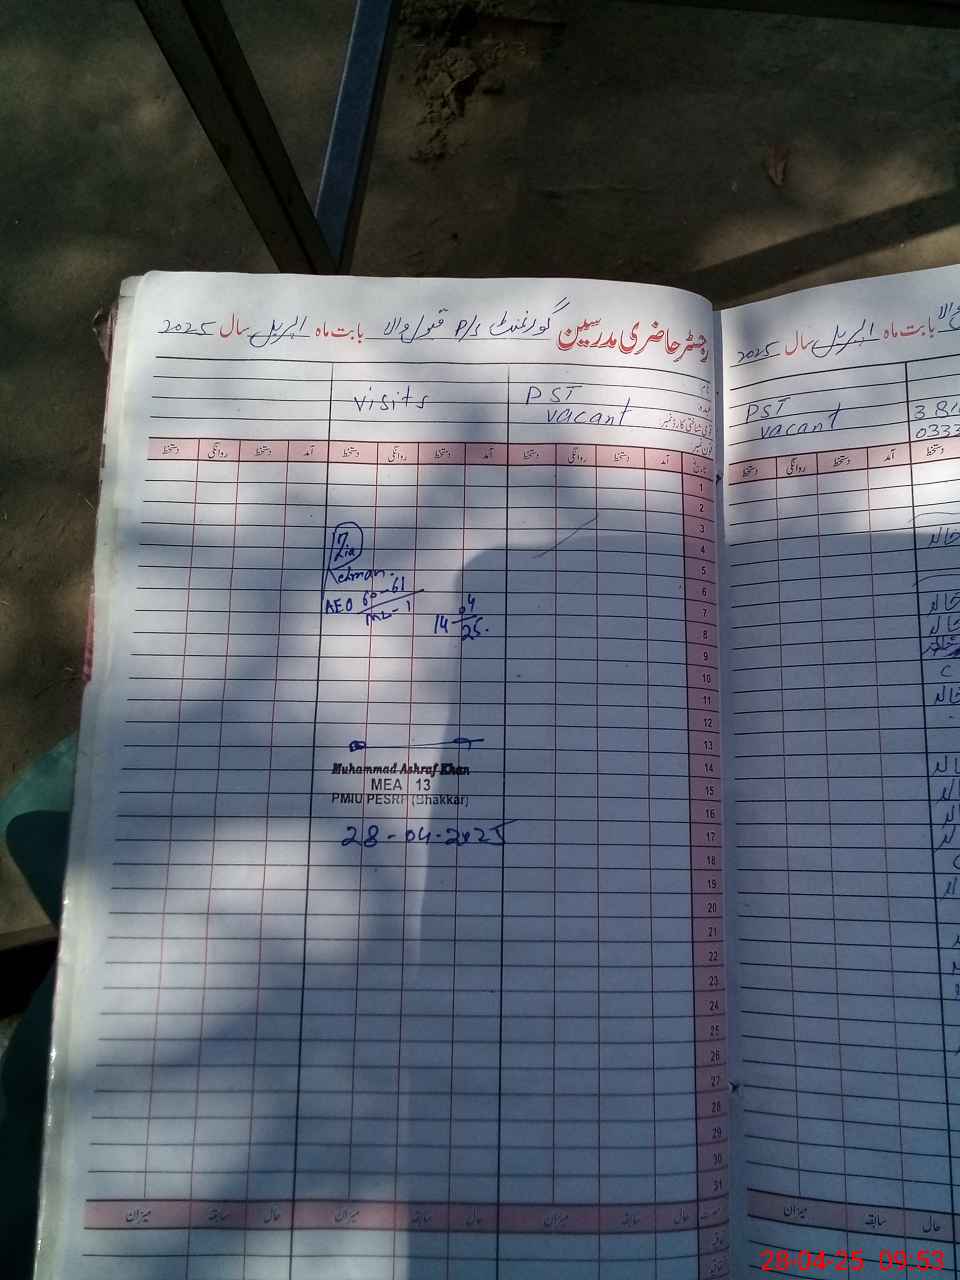 رجسٹر حاضری مدرسین گورنمنٹ P/s قبول والا بابت ماہ اپریل سال 2025
نام
عہدہ PST
vacant
visits
قومی شناختی کارڈ نمبر
فون نمبر
تاریخ آمد دستخط روانگی دستخط آمد دستخط روانگی دستخط آمد دستخط روانگی دستخط
1
2
3
4
5
6
7
8
9
10
11
12
13
14
15
16
17
18
19
20
21
22
23
24
25
26
27
28
29
30
31
Zia
Rehman.
AEO 60-61
14 04
25.
Muhammad Ashraf Khan
MEA 13
PMIU PESRP (Bhakkar)
28-04-2025
حال سابقہ میزان حال سابقہ میزان حال سابقہ میزان
بابت ماہ اپریل سال 2025
PST
vacant
0333
دستخط آمد دستخط روانگی دستخط
خالد
حال سابقہ میزان
28-04-25 09:53